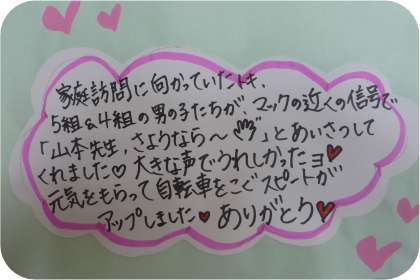 家庭訪問に向かっていたトキ、
5組&4組の男の子たちが、マックの近くの信号で
「山本先生，さようなら～👋」とあいさつして
くれました♡大きな声でうれしかったョ♥
元気をもらって自転車をこぐスピートが
アップしました♥ありがとう♥